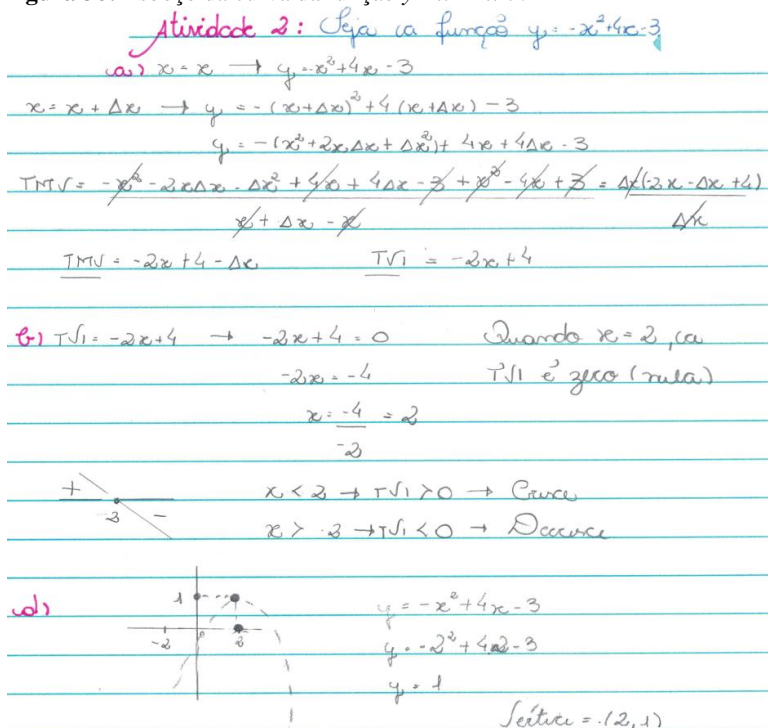 Atividade 2: Seja a função y = -x²+4x-3
a) x = x → y = -x²+4x-3
x = x + Δx → y = -(x+Δx)² + 4(x+Δx) - 3
y = -(x²+2xΔx+Δx²) + 4x + 4Δx - 3
TMV = -x² - 2xΔx - Δx² + 4x + 4Δx - 3 + x² - 4x + 3 = Δx(-2x - Δx + 4)
x + Δx - x Δx
TMV = -2x + 4 - Δx TVI = -2x + 4
b) TVI = -2x+4 → -2x+4 = 0 Quando x = 2, a
-2x = -4 TVI é zero (nula)
x = -4 = 2
-2
+ x < 2 → TVI > 0 → Cresce
2 - x > 2 → TVI < 0 → Decresce
d) 1 y = -x²+4x-3
-2 2 y = -2²+4.2-3
y = 1
Vértice = (2,1)